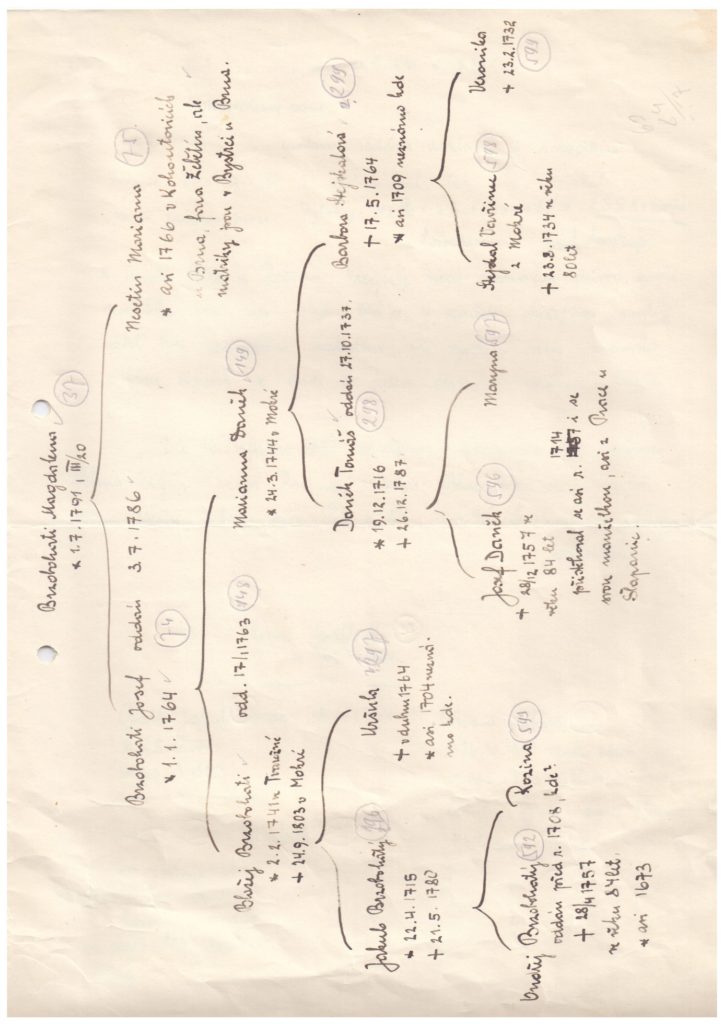 Brzobohatí Magdalena 37
* 1.7.1791, III/20
Brzobohatí Josef oddáni 3.7.1786
74
* 1.1.1764
Nesetin Marianna 75
* asi 1766 v Kohoutovicích
u Brna, fara Žebětín, ale
matriky jsou v Bystrci u Brna.
Blažej Brzobohatí odd. 17/1 1763 148
* 2.2.1741 v
+ 24.9.1803 v Mokré
Marianna Daněk 149
* 24.3.1744 v Mokré
Jakub Brzobohatý 296
* 22.4.1715
+ 21.5.1780
Uršula 297
+ v dubnu 1764
* asi 1704 nezná-
mo kde.
Daněk Tomáš oddáni 27.10.1737.
298
* 19.12.1716
+ 26.12.1787
Barbora Hejkalová 299
+ 17.5.1764
* asi 1709 neznámo kde
Ondřej Brzobohatý 592
oddáni před r. 1703, kde?
+ 28/4 1757
v věku 84 let,
* asi 1673
Rozina 593
Josef Daněk 596
+ 28/12 1757 v
věku 84 let
1714
přistěhoval se asi r. i se
svou manželkou, asi z Prace u
Šlapanic.
Maryna 597
Hejkal Vavřinec 598
z Mokré
+ 23.8.1734 v věku
80 let
Veronika
+ 23.2.1732
599